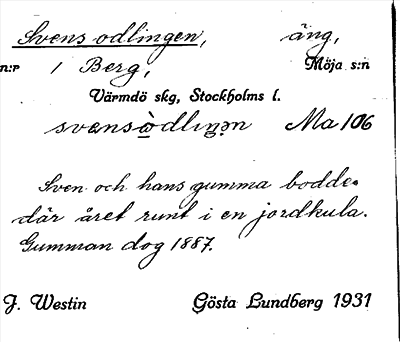 Svens odlingen, äng,
n:r 1 Berg, Möja s:n
Värmdö skg, Stockholms l.
svensòdlingen Ma 106
Sven och hans gumma bodde
där året runt i en jordkula.
Gumman dog 1887.
J. Westin Gösta Lundberg 1931